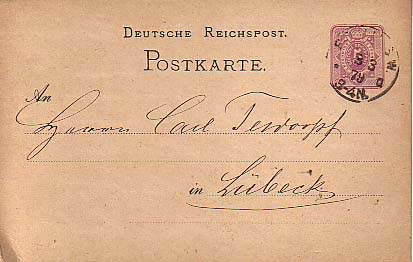 DEUTSCHE REICHSPOST.
POSTKARTE.
3 3
79
3-4N.
An
Herrn Carl Tesdorpf
in Lübeck